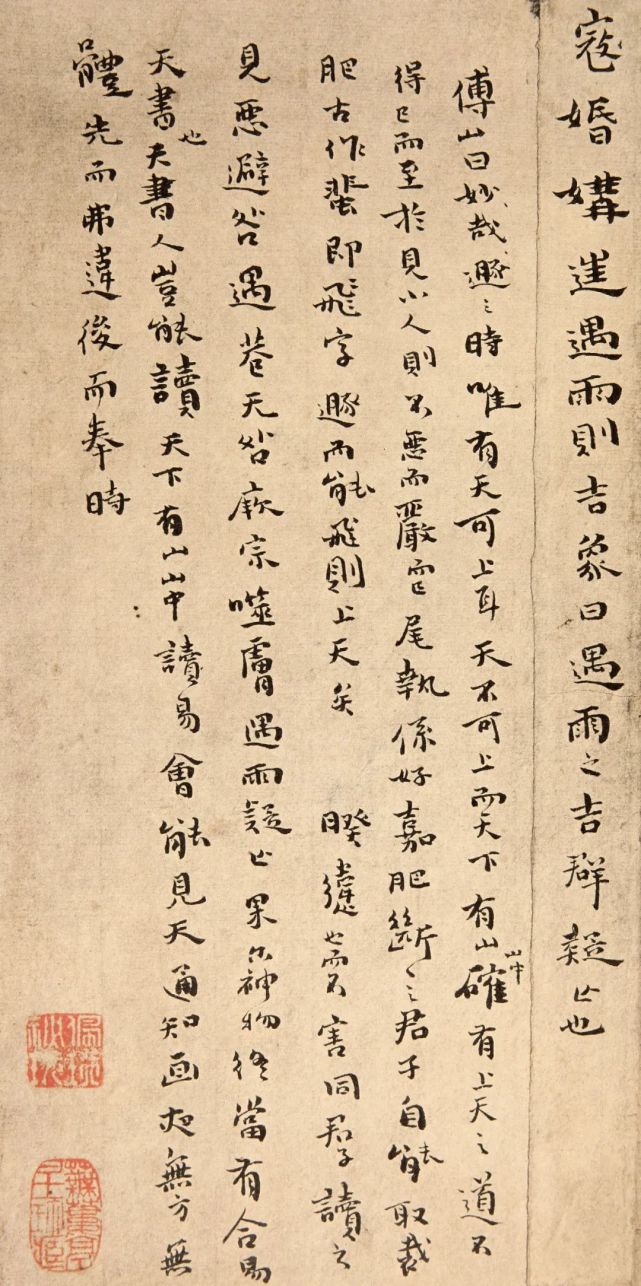 寇婚媾遇雨則吉象曰遇雨之吉群疑亡也
傅山曰妙哉遯之時唯有天可上耳天不可上而天下有山山中確有上天之道不
得已而至於見小人則不惡而嚴它尾執係好嘉肥斷斷之君子自能取裁
肥古作蜚即飛字遯而能飛則上天矣 睽違也而不害同君子讀之
見惡避咎遇巷天咎厥宗噬膚遇雨疑亡果尔神物終當有合易
天書也天書人豈能讀天下有山山中讀易會能見天通知晝夜無方無
體先而弗違後而奉時